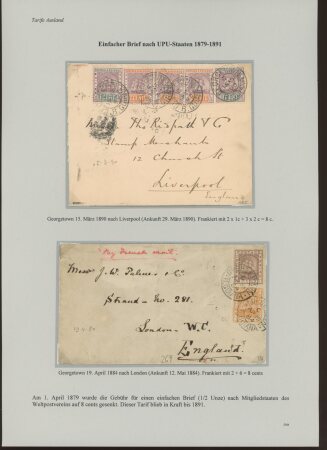 Tarife Ausland
Einfacher Brief nach UPU-Staaten 1879-1891
The Ridpath & Co
Stamp Merchants
12 Church St
Liverpool
England
Georgetown 15. März 1890 nach Liverpool (Ankunft 29. März 1890). Frankiert mit 2 x 1c + 3 x 2 c = 8 c.
Per French mail.
Messrs J. W. Palmer & Co.
Strand - No. 281.
London - W.C.
England.
Georgetown 19. April 1884 nach London (Ankunft 12. Mai 1884). Frankiert mit 2 + 6 = 8 cents
Am 1. April 1879 wurde die Gebühr für einen einfachen Brief (1/2 Unze) nach Mitgliedstaaten des
Weltpostvereins auf 8 cents gesenkt. Dieser Tarif blieb in Kraft bis 1891.